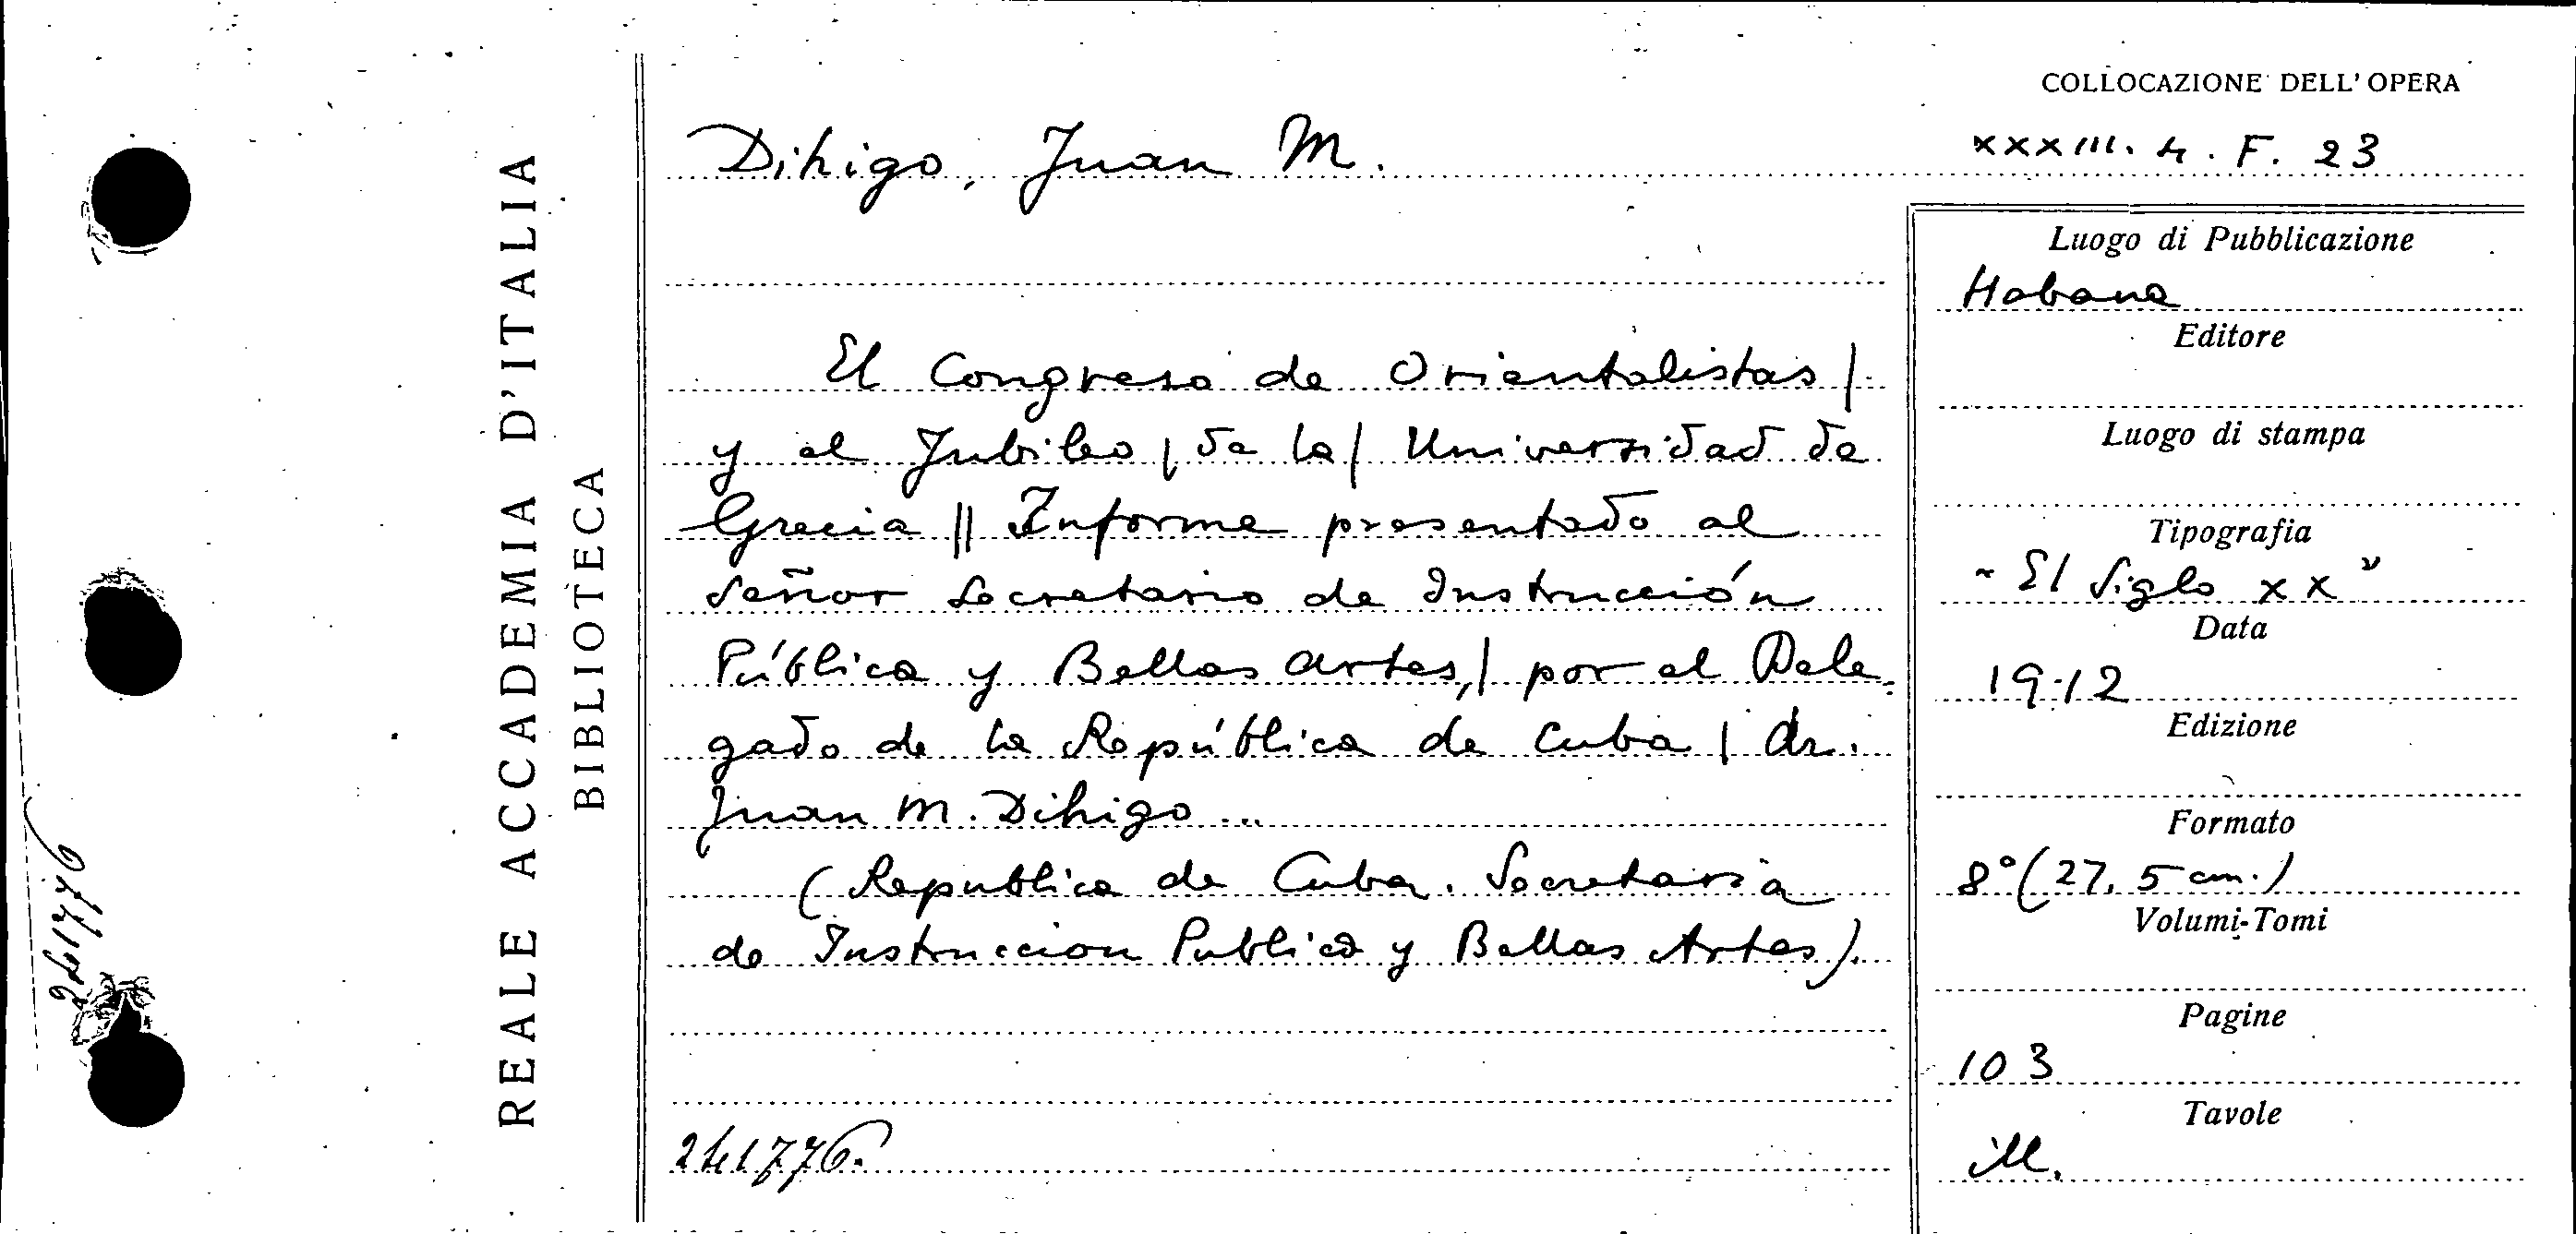 COLLOCAZIONE DELL'OPERA
Dihigo, Juan M.
XXXIII. 4. F. 23
REALE ACCADEMIA D'ITALIA
BIBLIOTECA
241776
El Congreso de Orientalistas |
y el Jubileo | de la | Universidad de
Grecia || Informe presentado al
señor Secretario de Instrucción
Pública y Bellas Artes, | por el Dele-
gado de la República de Cuba | dr.
Juan M. Dihigo ...
(Republica de Cuba. Secretaria
de Instruccion Publica y Bellas Artes).
241776.
Luogo di Pubblicazione
Habana
Editore
Luogo di stampa
Tipografia
"El Siglo XX"
Data
1912
Edizione
Formato
8° (27,5 cm.)
Volumi-Tomi
Pagine
103
Tavole
ill.